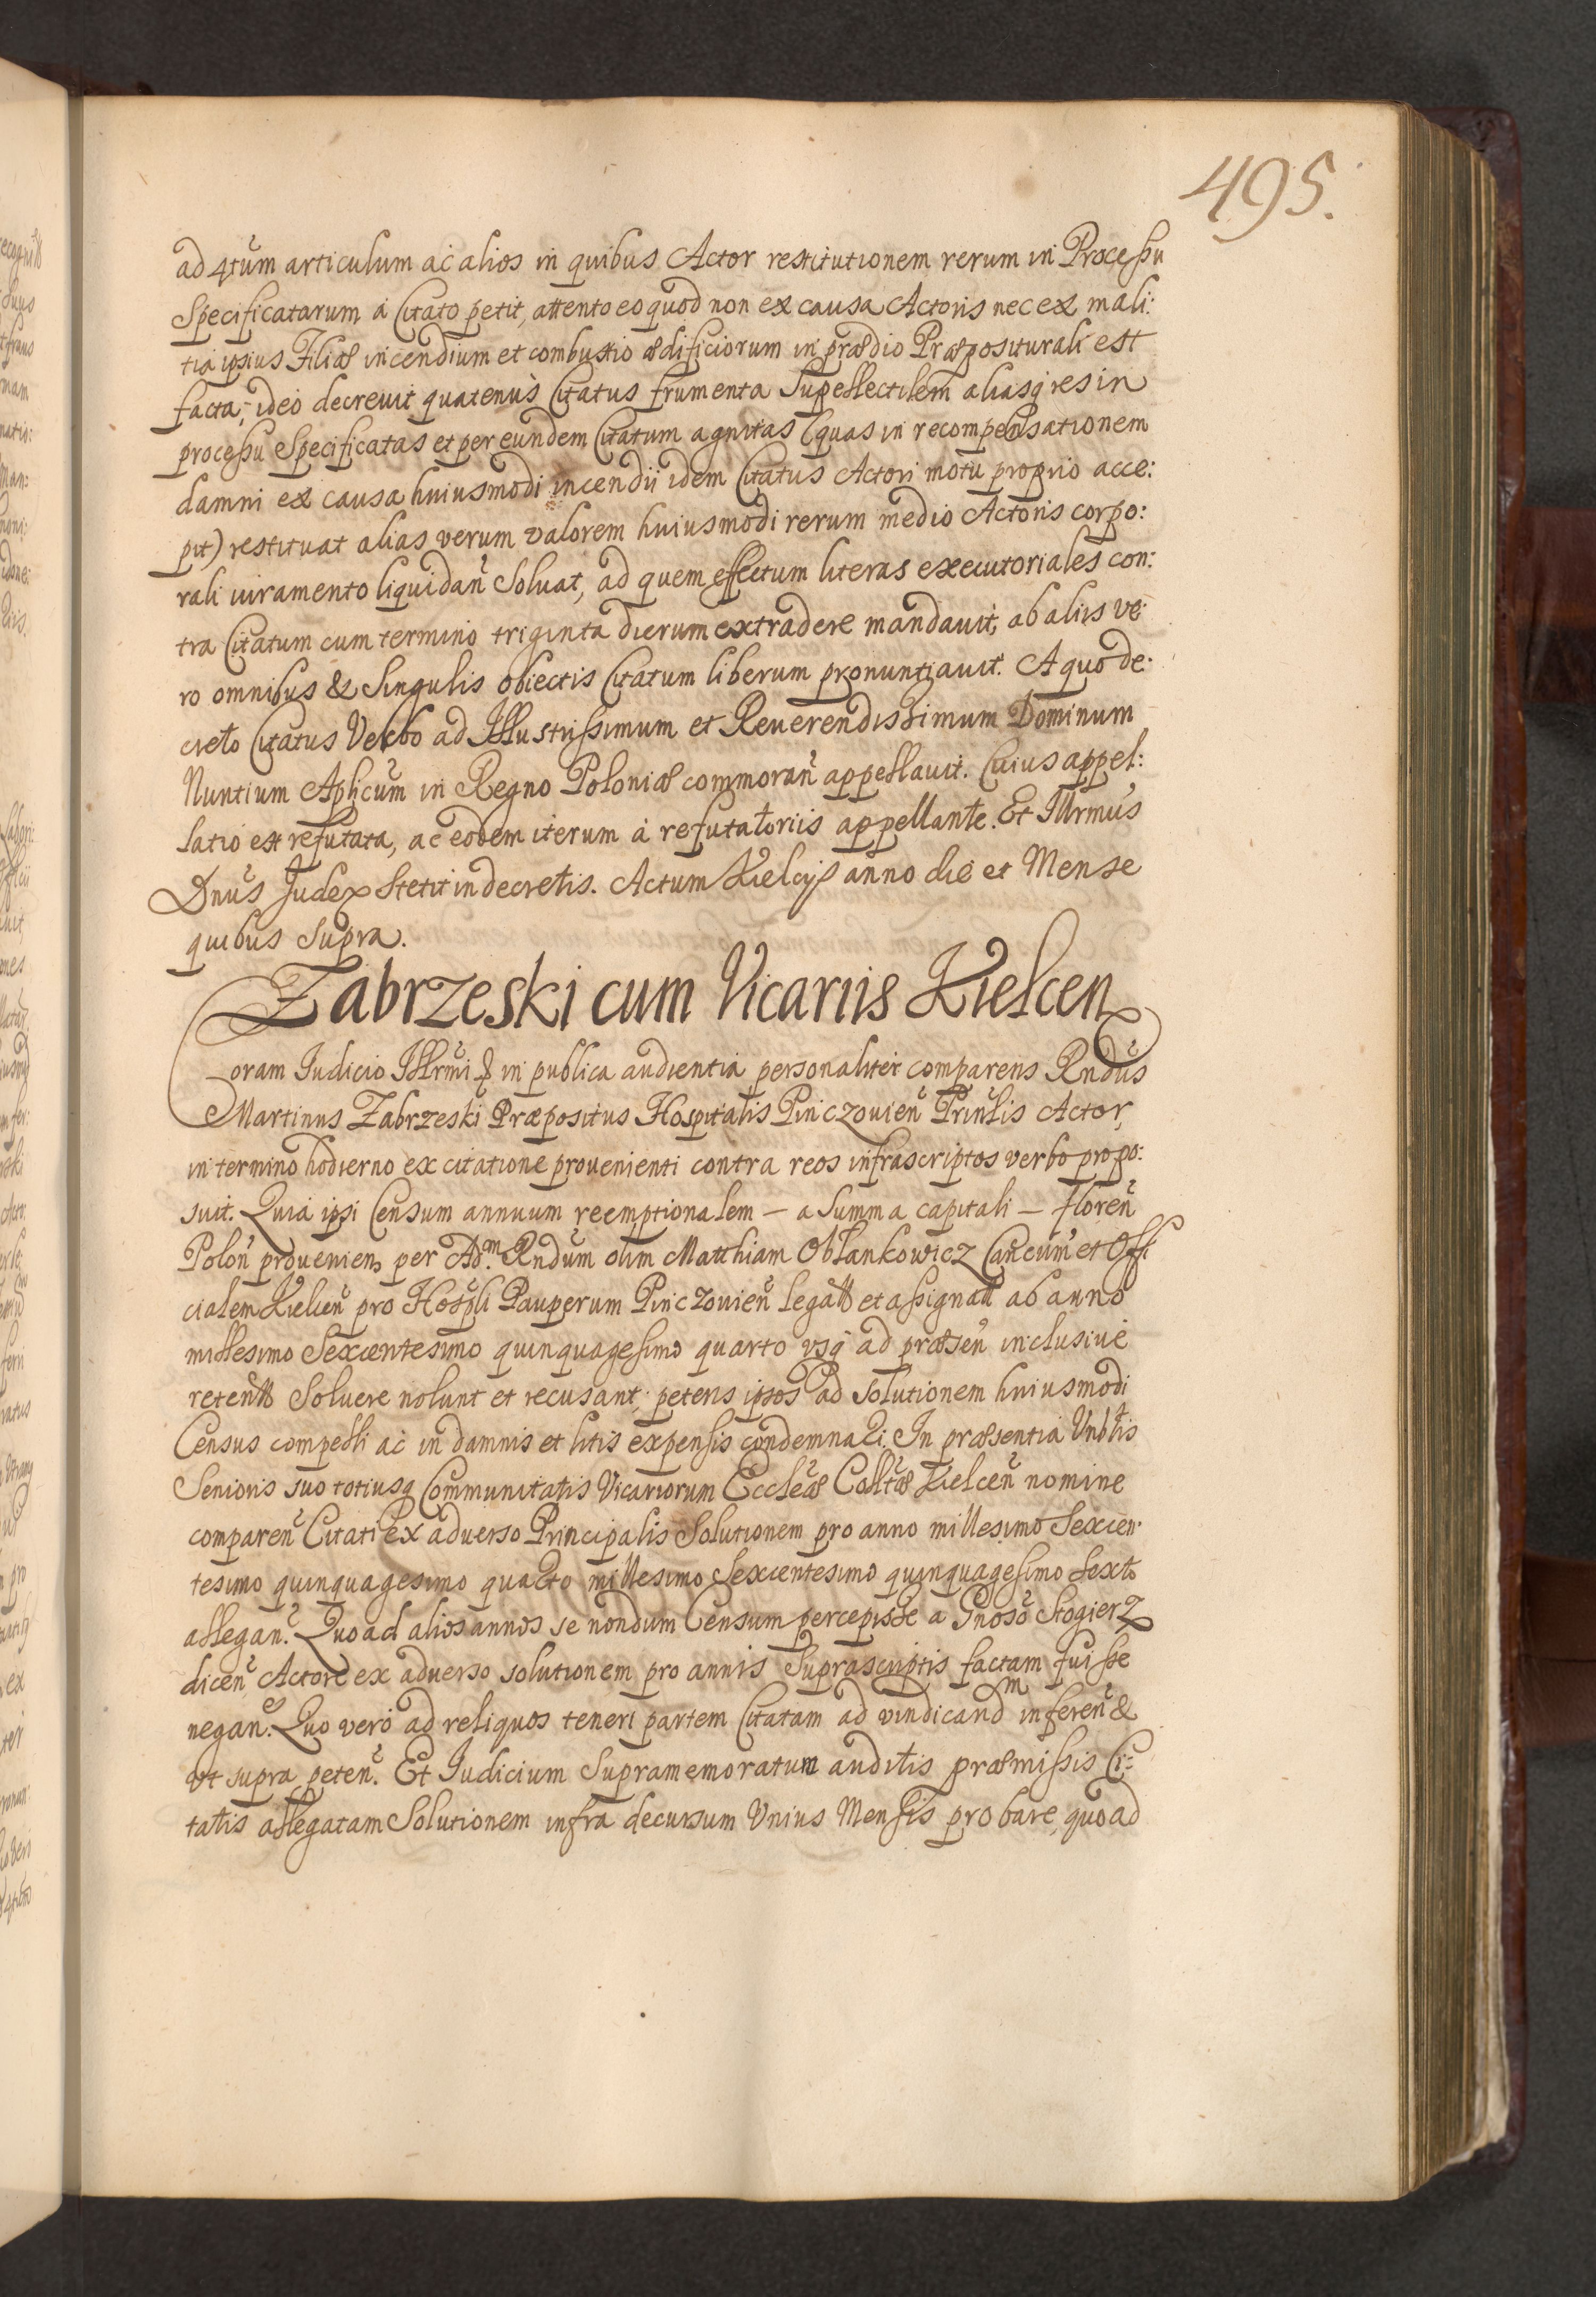 495.
ad 4tum articulum ac alios in quibus Actor restitutionem rerum in Processu
Specificatarum à Citato petit, attento eo quod non ex causa Actoris nec ex mali:
tia ipsius Filiæ incendium et combustio ædificiorum in prædio Præpositurali est
facta, ideò decreuit quatenùs Citatus frumenta Supellectilem aliasq; res in
processu Specificatas et per eundem Citatum agnitas (quas in recompensationem
damni ex causa huiusmodi incendii idem Citatus Actori motu proprio acce:
pit) restituat alias verum valorem huiusmodi rerum medio Actoris corpo:
rali iuramento liquidañ Soluat, ad quem effectum literas executoriales con:
tra Citatum cum termino triginta dierum extradere mandauit, ab aliis ve
ro omnibus & Singulis obiectis Citatum liberum pronuntiauit. A quo de:
creto Citatus Verbo ad Illustrissimum et Reuerendissimum Dominum
Nuntium Aplicum in Regno Poloniæ commorañ appellauit. Cuius appel:
latio est refutata, ac eodem iterum à refutatoriis appellante. Et Illrmus
Dnus Judex Stetit in decretis. Actum Kielcijs anno die et Mense
quibus Supra.
Zabrzeski cum Vicariis Kielcen
Coram Iudicio Illrmi & in publica audientia personaliter comparens Rndus
Martinus Zabrzeski Præpositus Hospitalis Pinczouieñ Prinlis Actor,
in termino hodierno ex citatione prouenienti contra reos infrascriptos verbo propo:
suit. Quia ipsi Censum annuum reemptionalem – a Summa capitali – floreñ
Poloñ prouenieñ per Ad.m Rndum olim Matthiam Obłankowicz Cancum et Offi
cialem Kielceñ pro Hospli Pauperum Pinczouieñ legatt et assignatt ab anno
millesimo Sexcentesimo quinquagesimo quarto vsq; ad præseñ inclusiuè
retentt Soluere nolunt et recusant; petens ipsos ad Solutionem huiusmodi
Census compelli ac in damnis et litis expensis condemnari. In præsentia Vnbtis
Senioris suo totiusq; Communitatis Vicariorum Eccleæ Colltæ Kielceñ nomine
compareñ Citati Ex aduerso Principalis Solutionem pro anno millesimo Sexcen:
tesimo quinquagesimo quarto millesimo Sexcentesimo quinquagesimo Sexto
allegañ. Quo ad alios annos se nondum Censum percepisse a Gnoso Stogierz
diceñ Actore ex aduerso solutionem pro annis Suprascriptis factam fuisse
negañ. Quo verò ad reliquos teneri partem Citatam ad vindicandm infereñ &
vt supra peteñ. Et Iudicium Supramemoratum auditis præmissis Ci:
tatis allegatam Solutionem infra decursum Vnius Mensis probare, quoad